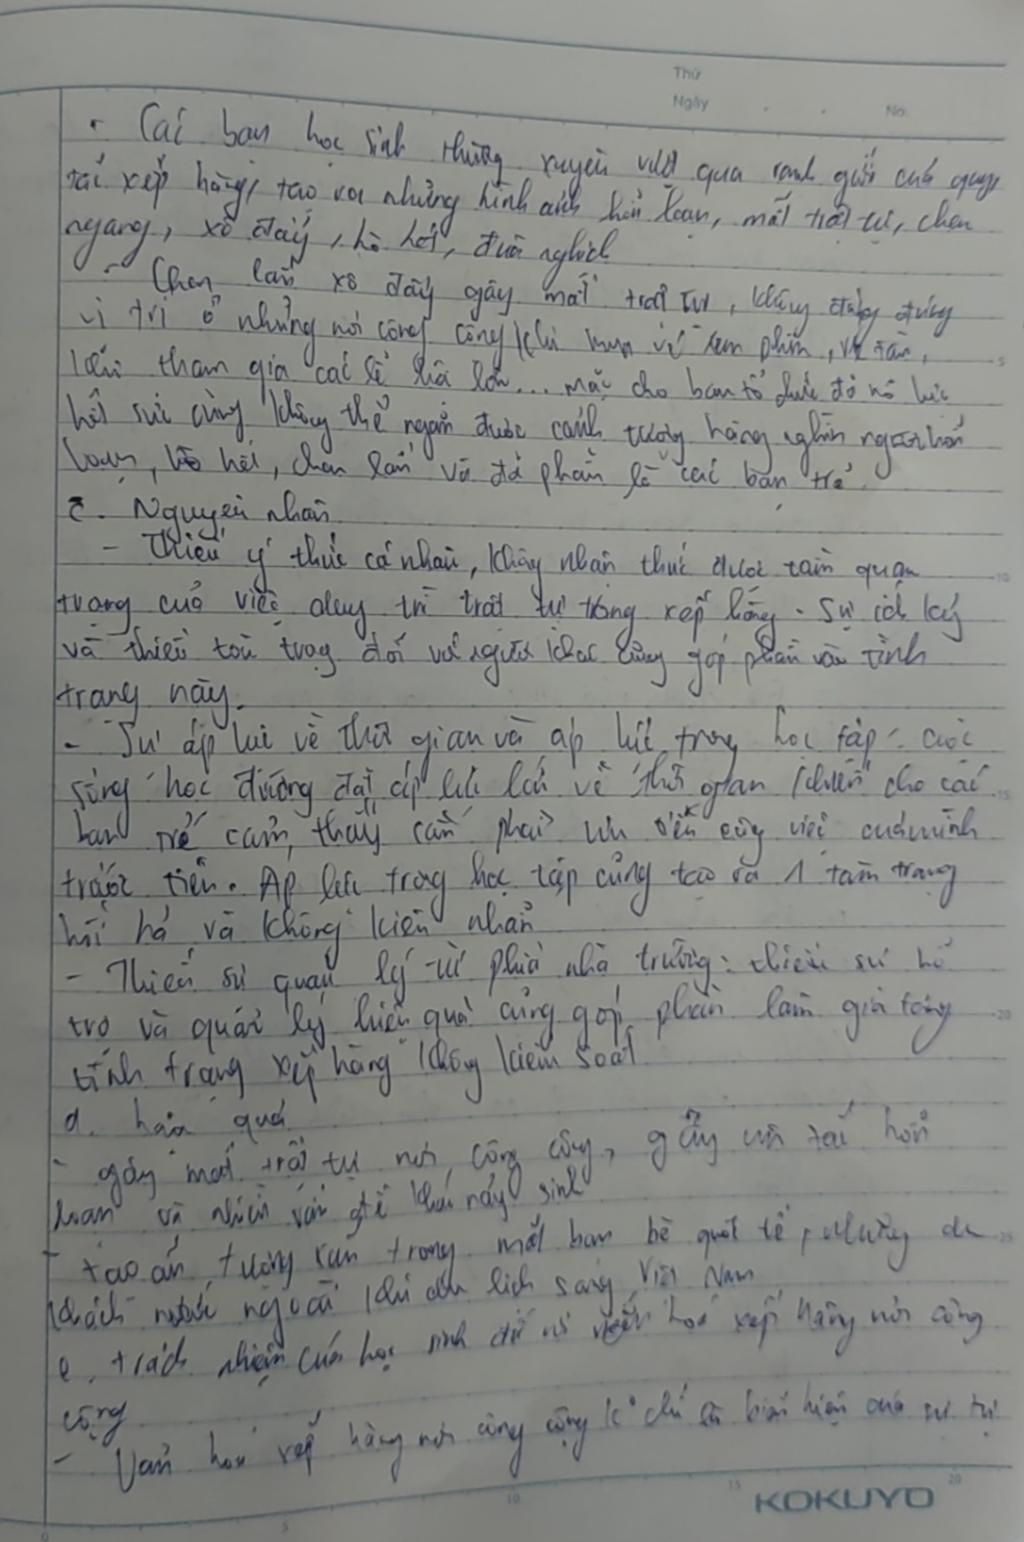 Thứ
Ngày . . No.
- Các bạn học sinh thường xuyên vượt qua ranh giới của quy
tắc xếp hàng, tạo ra những hình ảnh hỗn loạn, mất trật tự, chen
ngang, xô đẩy, hò hét, đùa nghịch
- Chen lấn xô đẩy gây mất trật tự, không đứng đúng
vị trí ở những nơi công cộng khi mua vé xem phim, vé tàu,
khi tham gia các lễ hội lớn... mặc cho ban tổ chức đã nỗ lực
hết sức cũng không thể ngăn được cảnh tượng hàng nghìn người hỗn
loạn, hò hét, chen lấn và đa phần là các bạn trẻ.
c. Nguyên nhân
- Thiếu ý thức cá nhân, không nhận thức được tầm quan
trọng của việc duy trì trật tự trong xếp hàng. Sự ích kỷ
và thiếu tôn trọng đối với người khác cũng góp phần vào tình
trạng này.
- Sự áp lực về thời gian và áp lực trong học tập: cuộc
sống học đường đặt áp lực lớn về thời gian khiến cho các
bạn trẻ cảm thấy cần phải ưu tiên công việc của mình
trước tiên. Áp lực trong học tập cũng tạo ra 1 tâm trạng
hối hả và không kiên nhẫn
- Thiếu sự quản lý từ phía nhà trường: thiếu sự hỗ
trợ và quản lý hiệu quả cũng góp phần làm gia tăng
tình trạng xếp hàng không kiểm soát
d. hậu quả
- gây mất trật tự nơi công cộng, gây ùn tắc hỗn
loạn và nhiều vấn đề khác nảy sinh
- tạo ấn tượng xấu trong mắt bạn bè quốc tế, những du
khách nước ngoài khi du lịch sang Việt Nam
e. trách nhiệm của học sinh đối với văn hoá xếp hàng nơi công
cộng
- Văn hoá xếp hàng nơi công cộng k° chỉ là biểu hiện của sự tự
KOKUYO